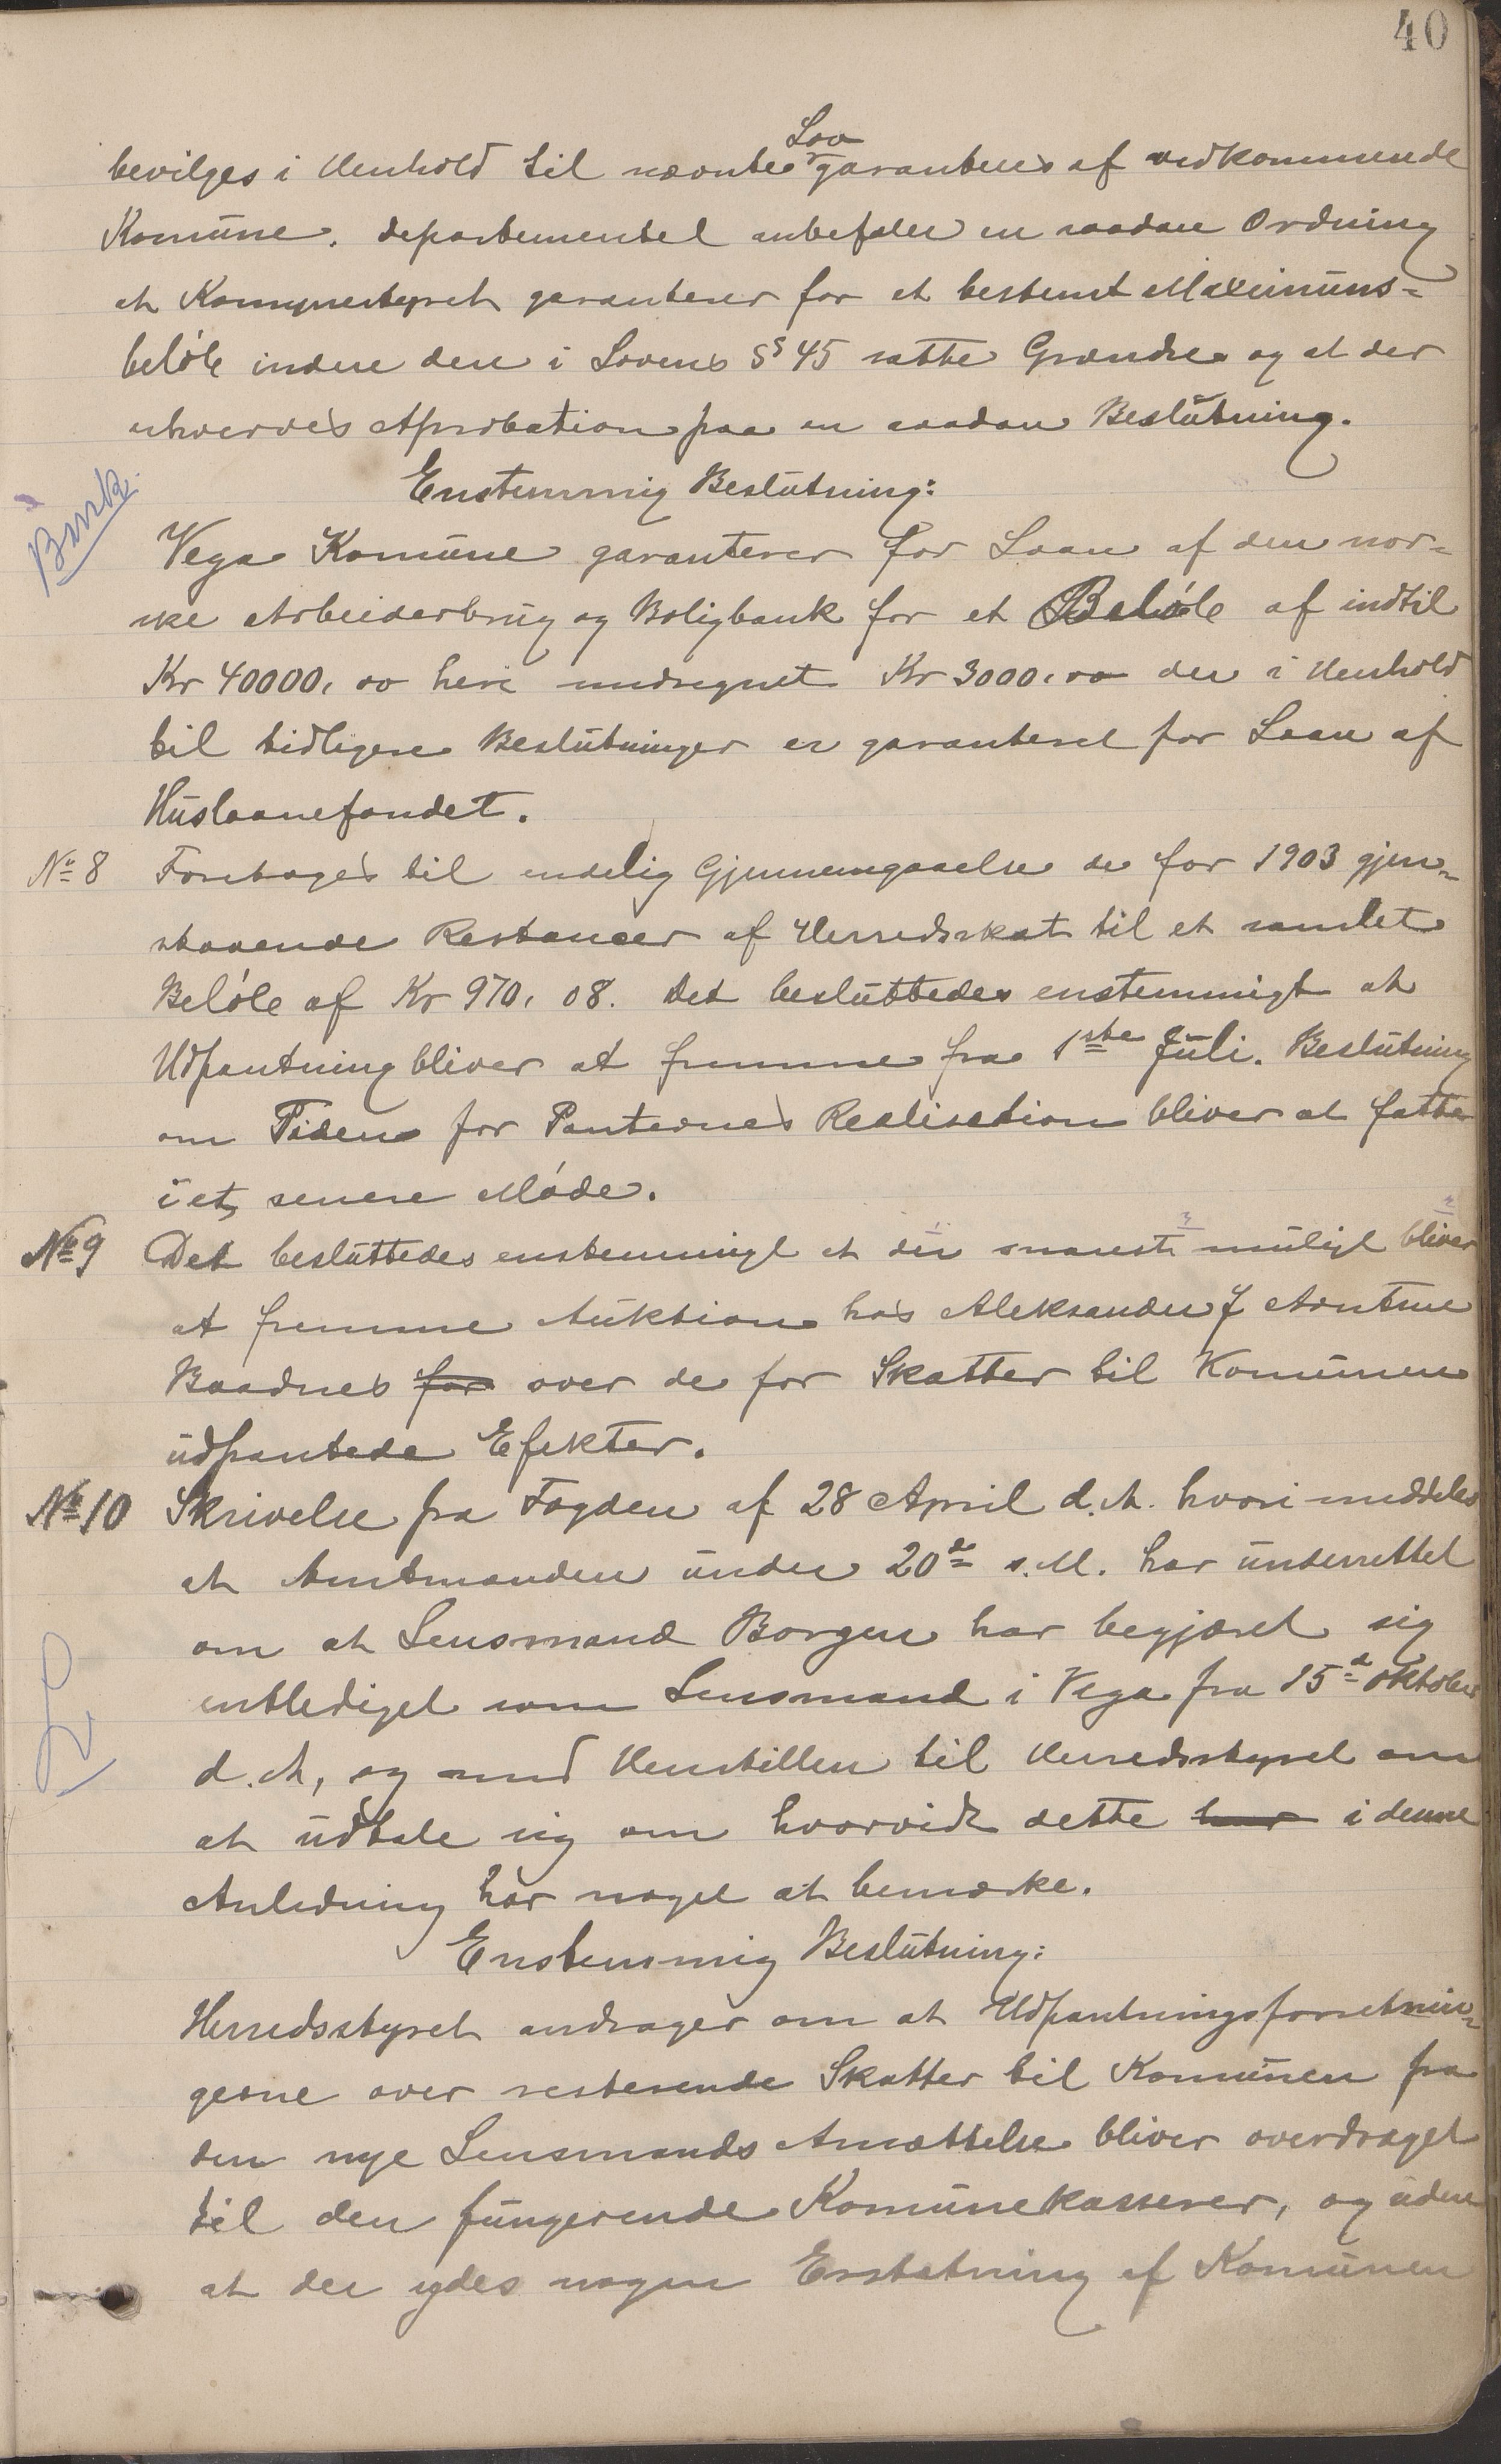 40
bevilges i Henhold til nævnte Lov garanteres af vedkommende
Komune. Departementet anbefaler en saadan Ordning
at Komunestyret garanterer for et bestemt Maximums-
beløb inden den i Lovens §§ 45 satte Grændse og at der
erhverves Aprobation paa en saadan Beslutning.
Enstemmig Beslutning:
Bmk.
Vega Komune garanterer for Laan af den nor-
ske Arbeiderbrug og Boligbank for et Beløb af indtil
Kr 40000,00 heri medregnet Kr 3000,00 der i Henhold
til tidligere Beslutninger er garanteret for Laan af
Huslaanefondet.
No 8 Foretoges til endelig Gjennemgaaelse de for 1903 gjen-
staaende Restancer af Herredsskat til et samlet
Beløb af Kr 970,08. Det besluttedes enstemmigt at
Udpantning bliver at fremme fra 1ste Juli. Beslutning
om Tiden for Panternes Realisation bliver at fatte
i et senere Møde.
No 9 Det besluttedes enstemmigt at der snarest muligt bliver
at fremme Auktion hos Aleksander J Arntsen
Baadnes for over de for Skatter til Komunen
udpantede Efekter.
No 10 Skrivelse fra Fogden af 28 April d.A. hvori meddeles
at Amtmanden under 20de s.M. har underrettet
om at Lensmand Borgen har begjæret sig
entlediget som Lensmand i Vega fra 15de Oktober
d.A, og med Henstillen til Herredsstyret om
at udtale sig om hvorvidt dette har i denne
Anledning har noget at bemærke.
Enstemmig Beslutning:
Herredsstyret andrager om at Udpantningsforretnin-
gerne over resterende Skatter til Komunen fra
den nye Lensmands Ansættelse bliver overdraget
til den fungerende Komunekasserer, og uden
at der ydes nogen Erstatning af Komunen